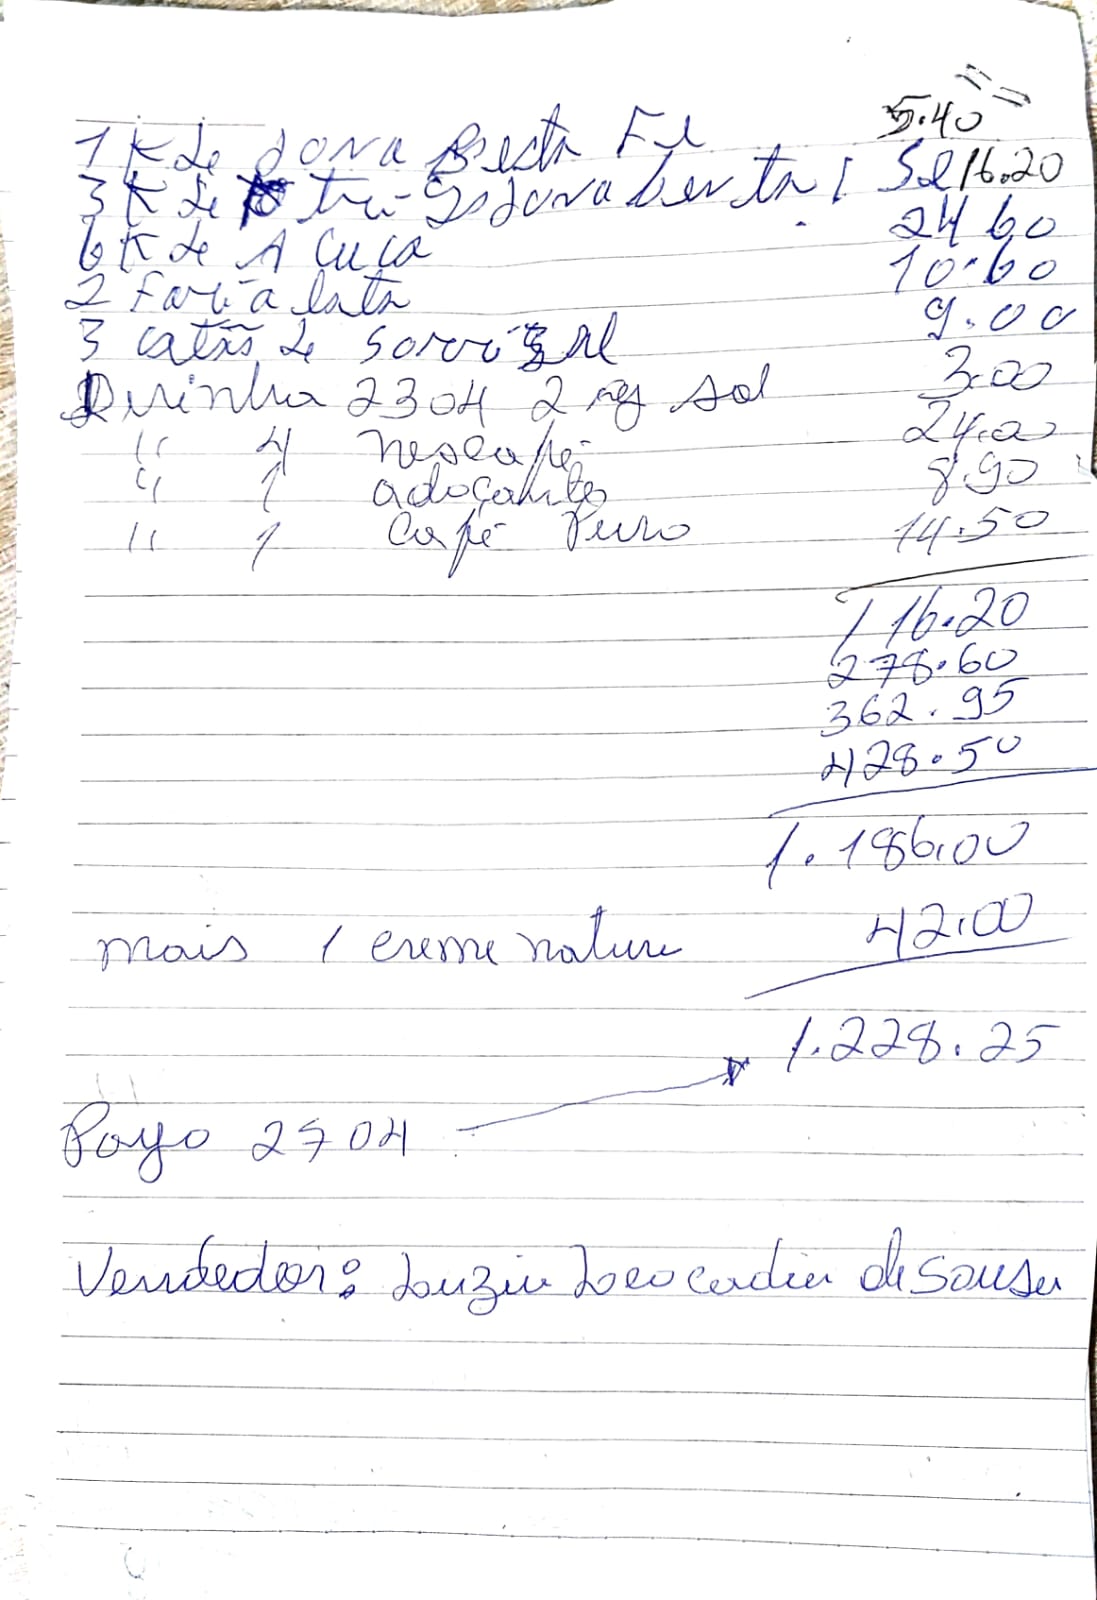 1 K de dona Besta Fe 5.40
3 K de tri-go dona benta 1 Se 16.20
6 K de A cuca 24 60
2 Fari-a lata 10.60
3 catão de sorriz al 9.00
Dirinha 2304 2 sal 3.00
" 4 nescafé 24.00
" 1 adoçante 8.90
" 1 Café Puro 14.50
116.20
278.60
362.95
428.50
1.186.00
mais 1 creme nature 42.00
1.228.25
Pago 2704
Vendedor: Luzia Leocadia de Sousa